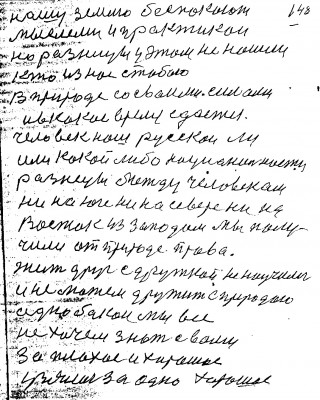 нашу землю беспокоют 148
мыслями и практикой
но разницы у этом не нашли
кто из нас с тобою
В природе со своими силами
и в какое время сдается.
человек наш русской ли
или какой либо национальности
разницы между человекам
ни на юге ни на севере ни на
Восток из Западом мы полу-
чили от природе права.
жить друг с дружкой не научилы
и не можем дружить с природаю
а однобакой мы все
не хочем знать с вами
За плохое и харошое
за одно харошое